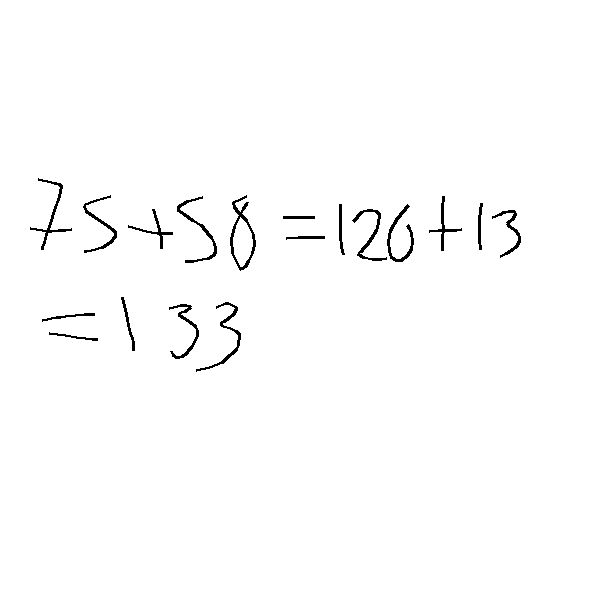 75+58=120+13
=133